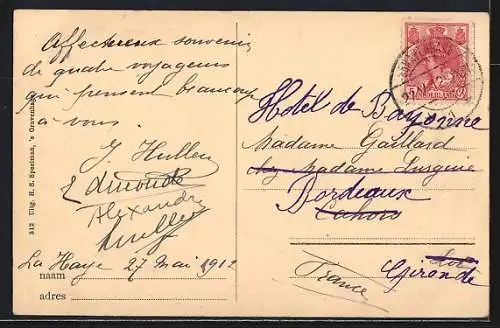 Affectueux souvenir
de quatre voyageurs
qui pensent beaucoup
à vous.
J. Hullen
Edmond
Alexandre
Hullen
La Haye 27 Mai 1912
naam
adres
312 Uitg. H. S. Speelman, 's Gravenhage
5 NEDERLAND
Hotel de Bayonne
Madame Gaillard
chez Madame Lurguie
Bordeaux
Cahors
Lot
Gironde
France